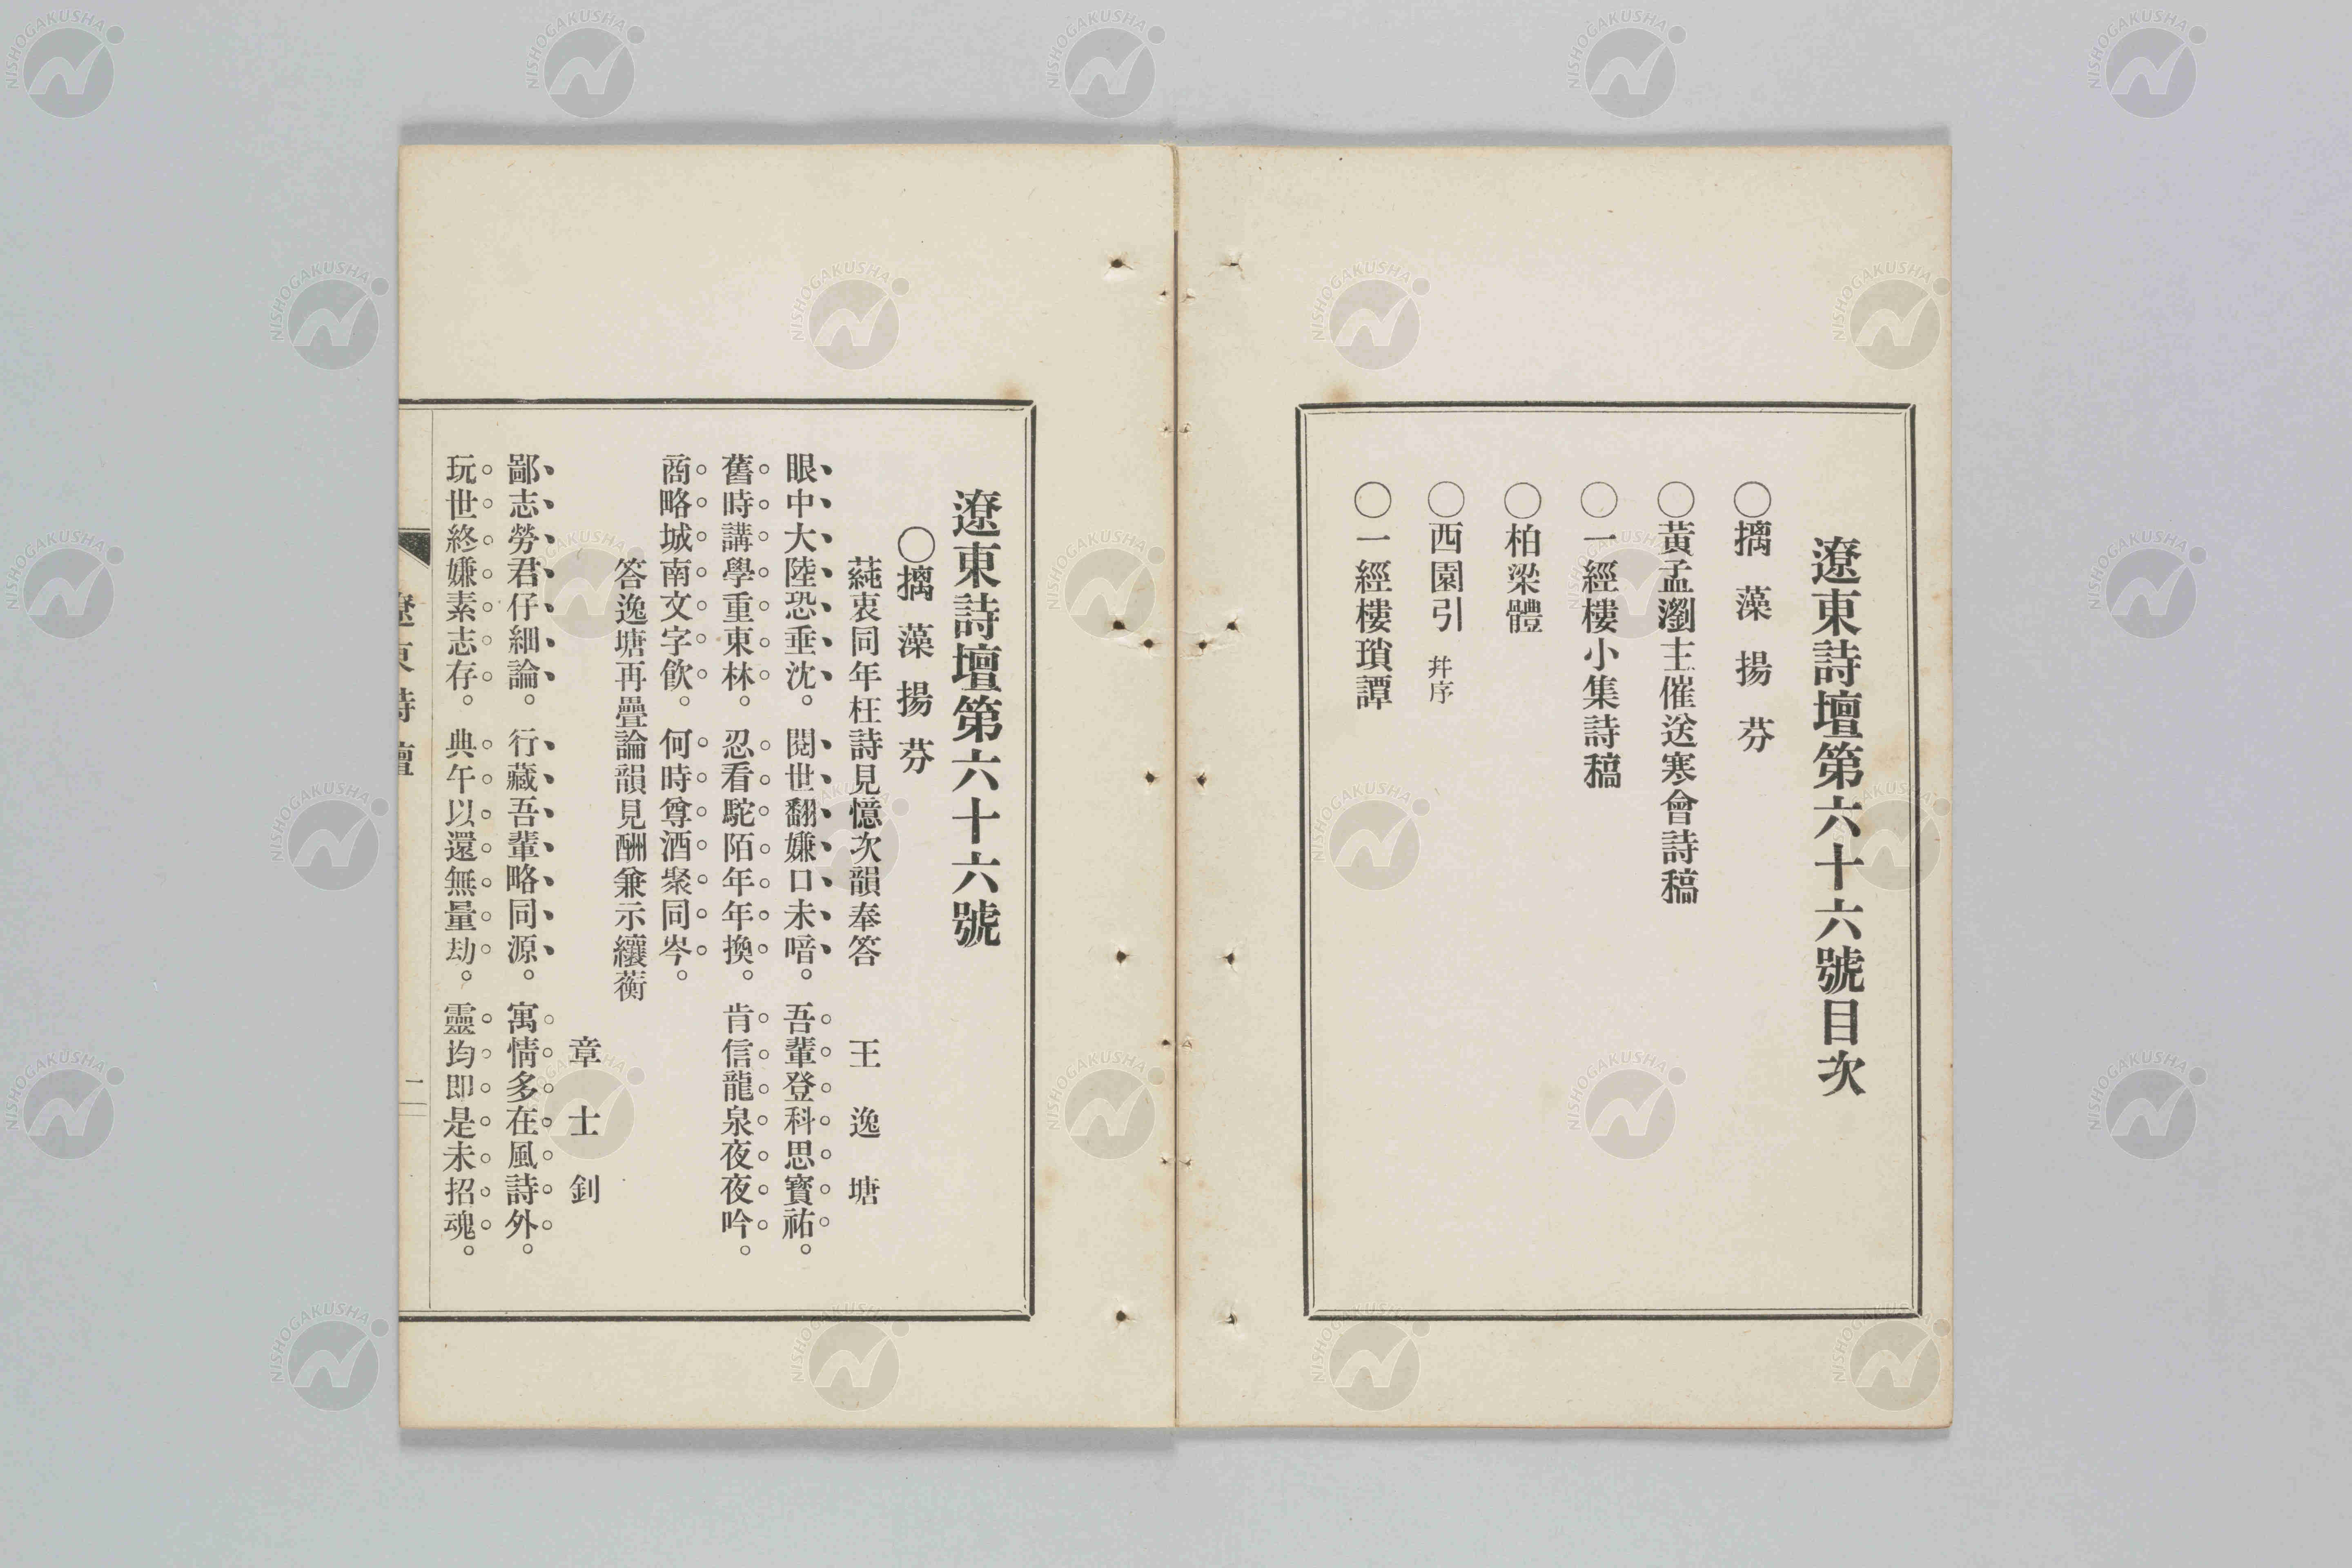 遼東詩壇第六十六號目次
〇摛藻揚芬
〇黃孟瀏主催送寒會詩稿
〇一經樓小集詩稿
〇柏梁體
〇西園引 幷序
〇一經樓瑣譚
遼東詩壇第六十六號
〇摛藻揚芬
蒓衷同年枉詩見憶次韻奉答 王逸塘
眼中大陸恐垂沈。閱世翻嫌口未喑。吾輩登科思寶祐。
舊時講學重東林。忍看駝陌年年換。肯信龍泉夜夜吟。
商略城南文字飮。何時尊酒聚同岑。
答逸塘再疊論韻見酬兼示纕蘅
章士釗
鄙志勞君仔細論。行藏吾輩略同源。寓情多在風詩外。
玩世終嫌素志存。典午以還無量劫。靈均即是未招魂。
遼東詩壇
一
NISHOGAKUSHA